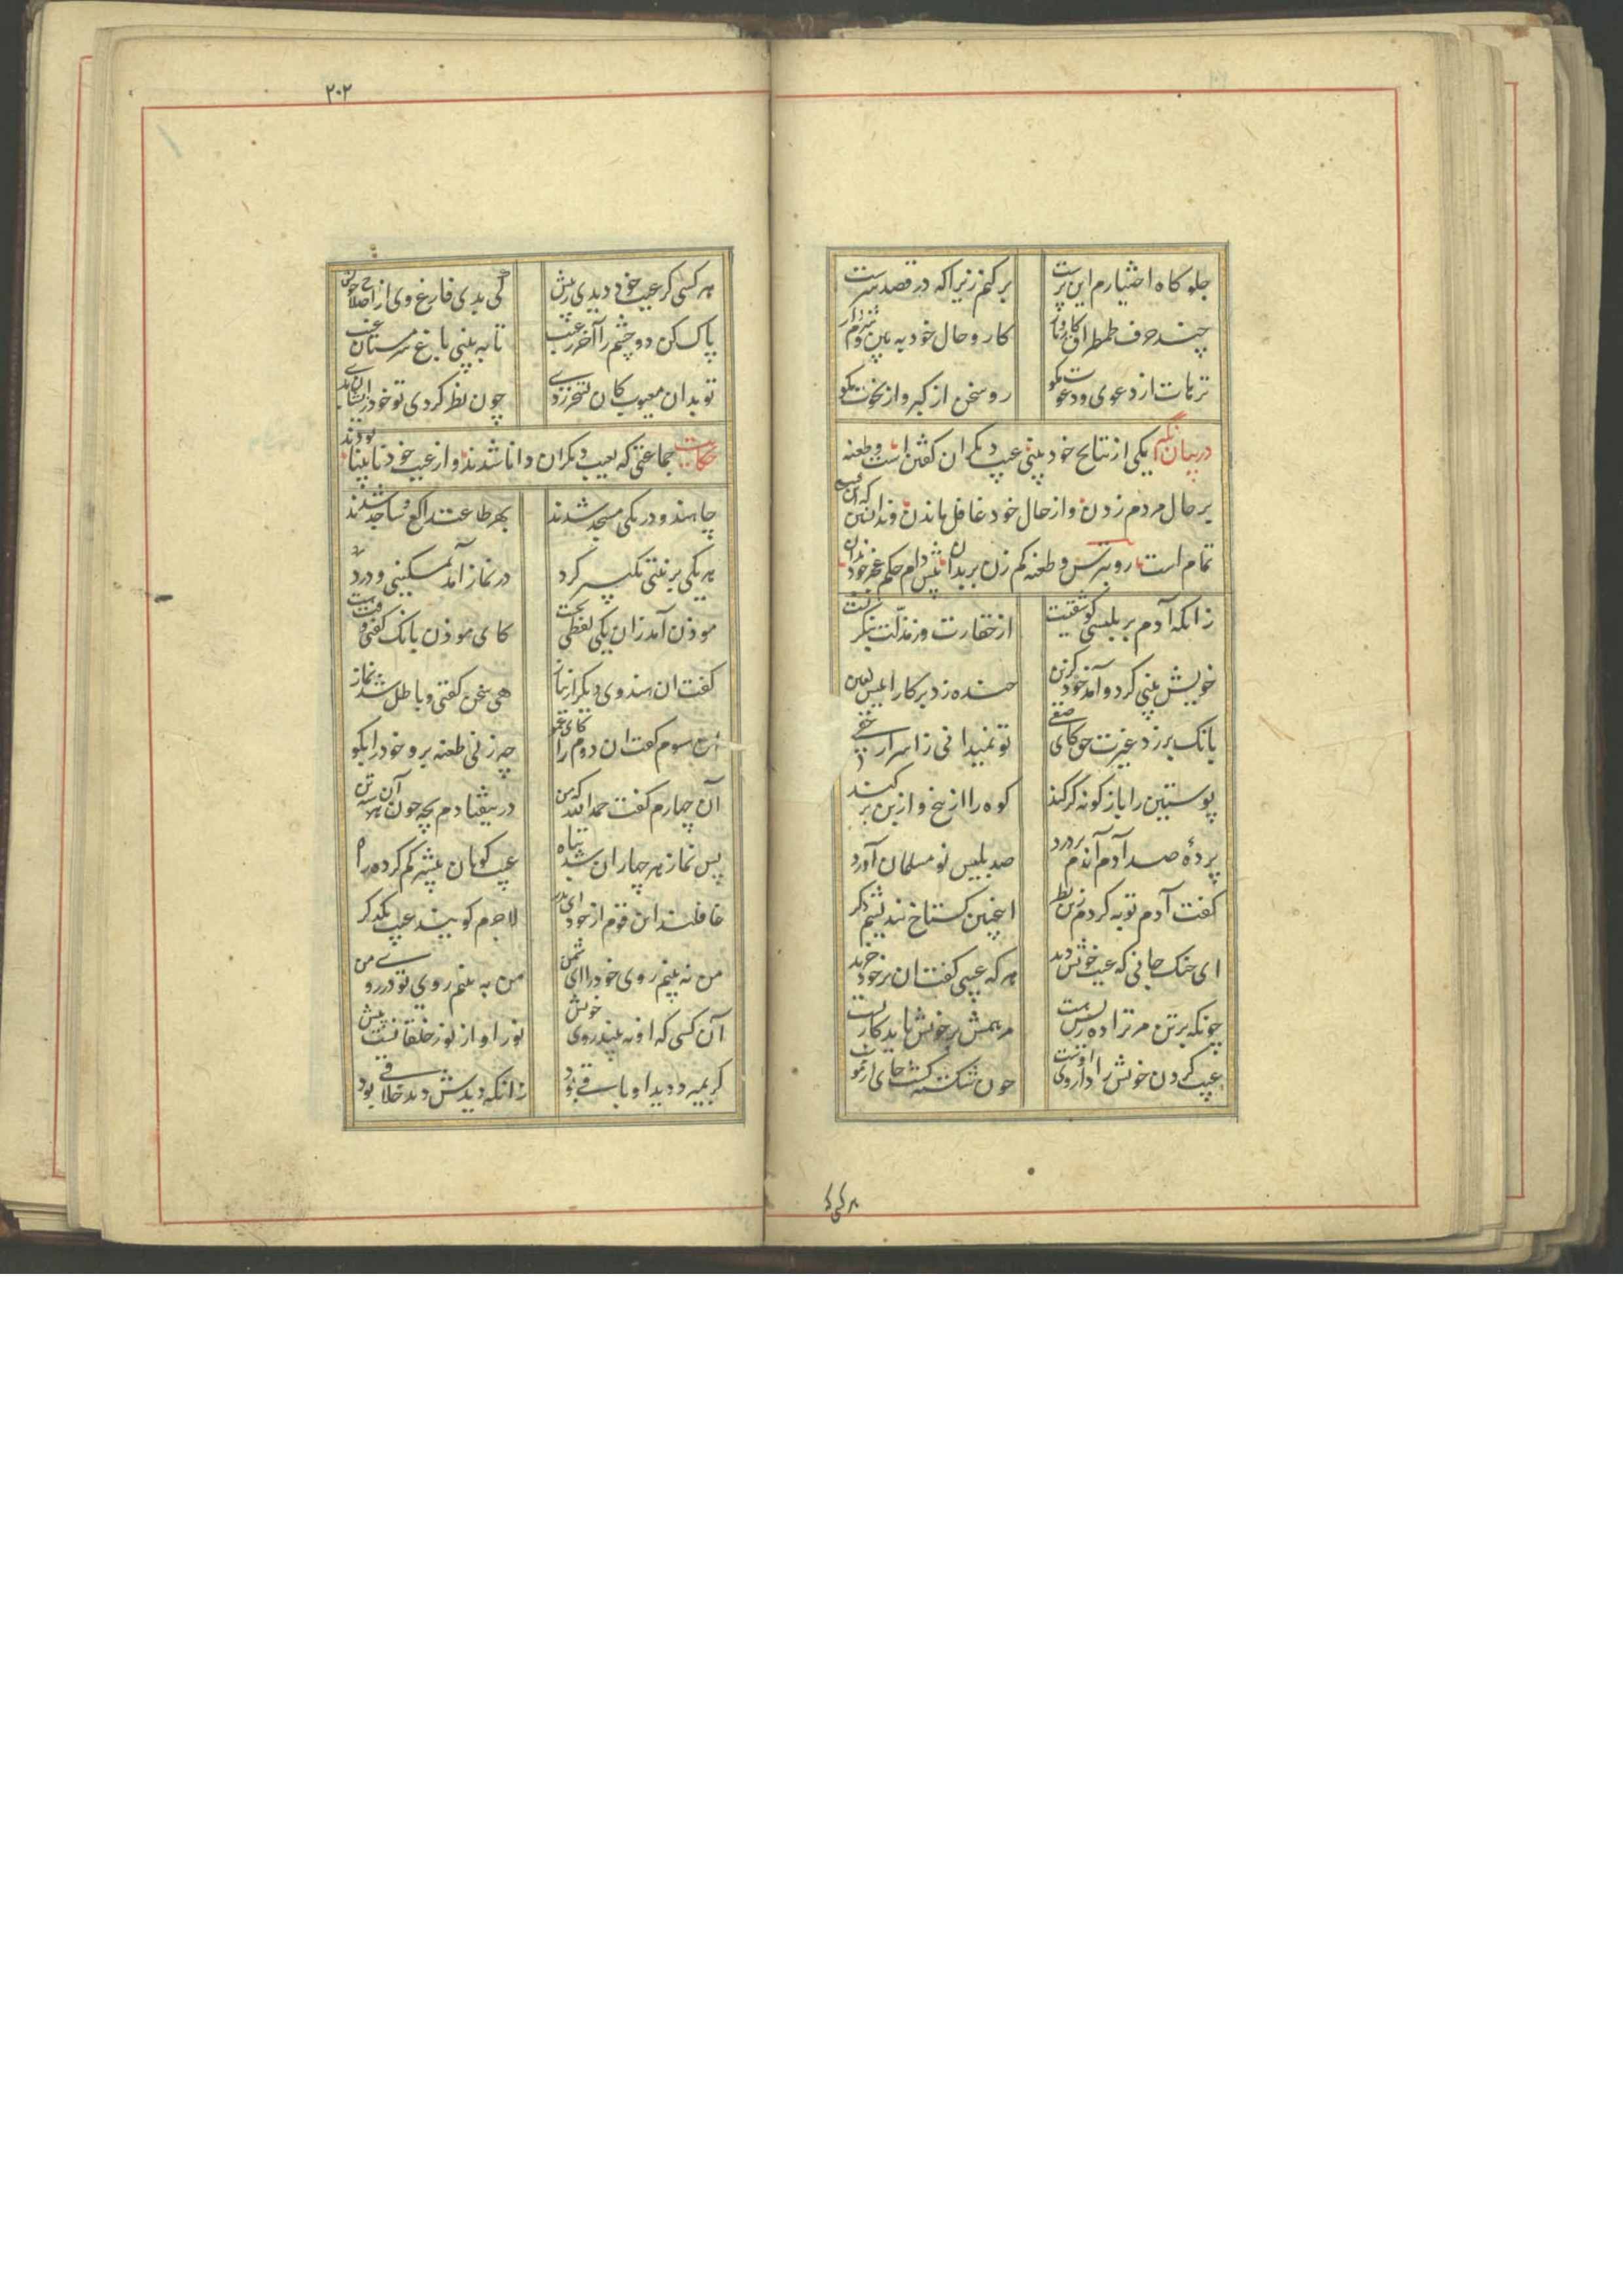 جلوه کاه اختیارم این پرست برکنم زیرا که در قصد سرست
چند حرف طمطراق کار و بار کار و حال خود ببین و شرم دار
ترهات از دعوی و دعوت مکو رو سخن از کبر و از نخوت مکو
در بیان آنکه یکی از نتایج خود بینی عیب دیکران کفتن است و طعنه
بر حال مردم زدن و از حال خود غافل ماندن و ندانستن که این عیب
تمام است رو بترس و طعنه کم زن بر بدان پیش دام حکم عجز خود بدان
زانکه آدم بر بلیسی کو شقیست از حقارت وز مذلت بنکریست
خویش بینی کرد و آمد خود کزین خنده زد بر کار ابلیس لعین
بانک برزد غیرت حق کای صفی تو نمیدانی ز اسرار خفی
پوستین را بازکونه کر کند کوه را از بیخ و از بن بر کند
پردهٔ صد آدم آندم بر درد صد بلیس نو مسلمان آورد
کفت آدم توبه کردم زین نظر اینچنین کستاخ نندیشم دکر
ای خنک جانی که عیب خویش دید هر که عیبی کفت ان بر خود خرید
چونکه بر تن مر ترا ده ریش هست مرهمش بر خویش باید کار بست
عیب کردن خویش را داروی اوست چون شکسته کشت جای
هر کی کر
۲۰۲
هر کسی کر عیب خود دیدی ز پیش کی بدی فارغ وی از اصلاح خویش
پاک کن دو چشم را آخر ز عیب تا به بینی باغ سرستان غیب
تو بدان معیوب کان
چون نظر کردی تو خود زیشان بدی
حکایت جماعتی که بعیب دیکران دانا شدند و از عیب خود نابینا بودند
چار هندو در یکی مسجد شدند بهر طاعت راکع و ساجد شدند
هر یکی بر نیتی تکبیر کرد در نماز آمد بمسکینی و درد
موذن آمد زان یکی لفظی بجست کای موذن بانک کفتی وقت هست
کفت ان هندوی دیکر از نیاز هی سخن کفتی و باطل شد نماز
آن سوم کفت ان دوم را کای عمو چه زنی طعنه برو خود را بکو
آن چهارم کفت حمد الله که من در نیفتادم بچه چون آن سه تن
پس نماز هر چهاران شد تباه عیب کویان بیشتر کم کرده راه
غافلند این قوم از خود ای پدر لاجرم کویند عیب یکدکر
من نه بینم روی خود را ای شمن من به بینم روی تو تو روی من
آن کسی که او به بیند روی خویش نور او از نور خلقانست بیش
کر بمیرد دید او باقی بود زانکه دیدش دید خلاقی بود